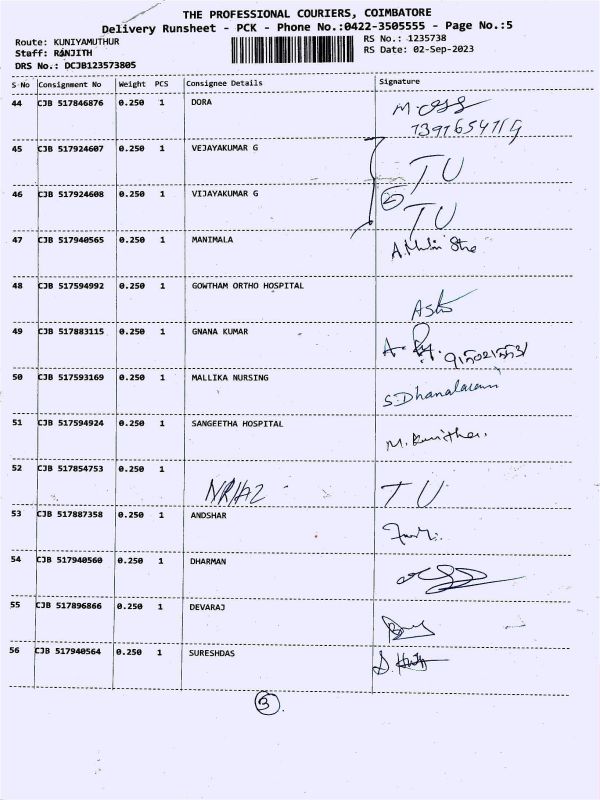 THE PROFESSIONAL COURIERS, COIMBATORE
Delivery Runsheet - PCK - Phone No.:0422-3505555 - Page No.:5
Route: KUNIYAMUTHUR RS No.: 1235738
Staff: RANJITH RS Date: 02-Sep-2023
DRS No.: DCJB123573805
S No Consignment No Weight PCS Consignee Details Signature
44 CJB 517846876 0.250 1 DORA
45 CJB 517924607 0.250 1 VEJAYAKUMAR G TU
46 CJB 517924608 0.250 1 VIJAYAKUMAR G 2 TU
47 CJB 517940565 0.250 1 MANIMALA
48 CJB 517594992 0.250 1 GOWTHAM ORTHO HOSPITAL
49 CJB 517883115 0.250 1 GNANA KUMAR
50 CJB 517593169 0.250 1 MALLIKA NURSING
51 CJB 517594924 0.250 1 SANGEETHA HOSPITAL
52 CJB 517854753 0.250 1 TU
53 CJB 517887358 0.250 1 ANDSHAR
54 CJB 517940560 0.250 1 DHARMAN
55 CJB 517896866 0.250 1 DEVARAJ
56 CJB 517940564 0.250 1 SURESHDAS
3